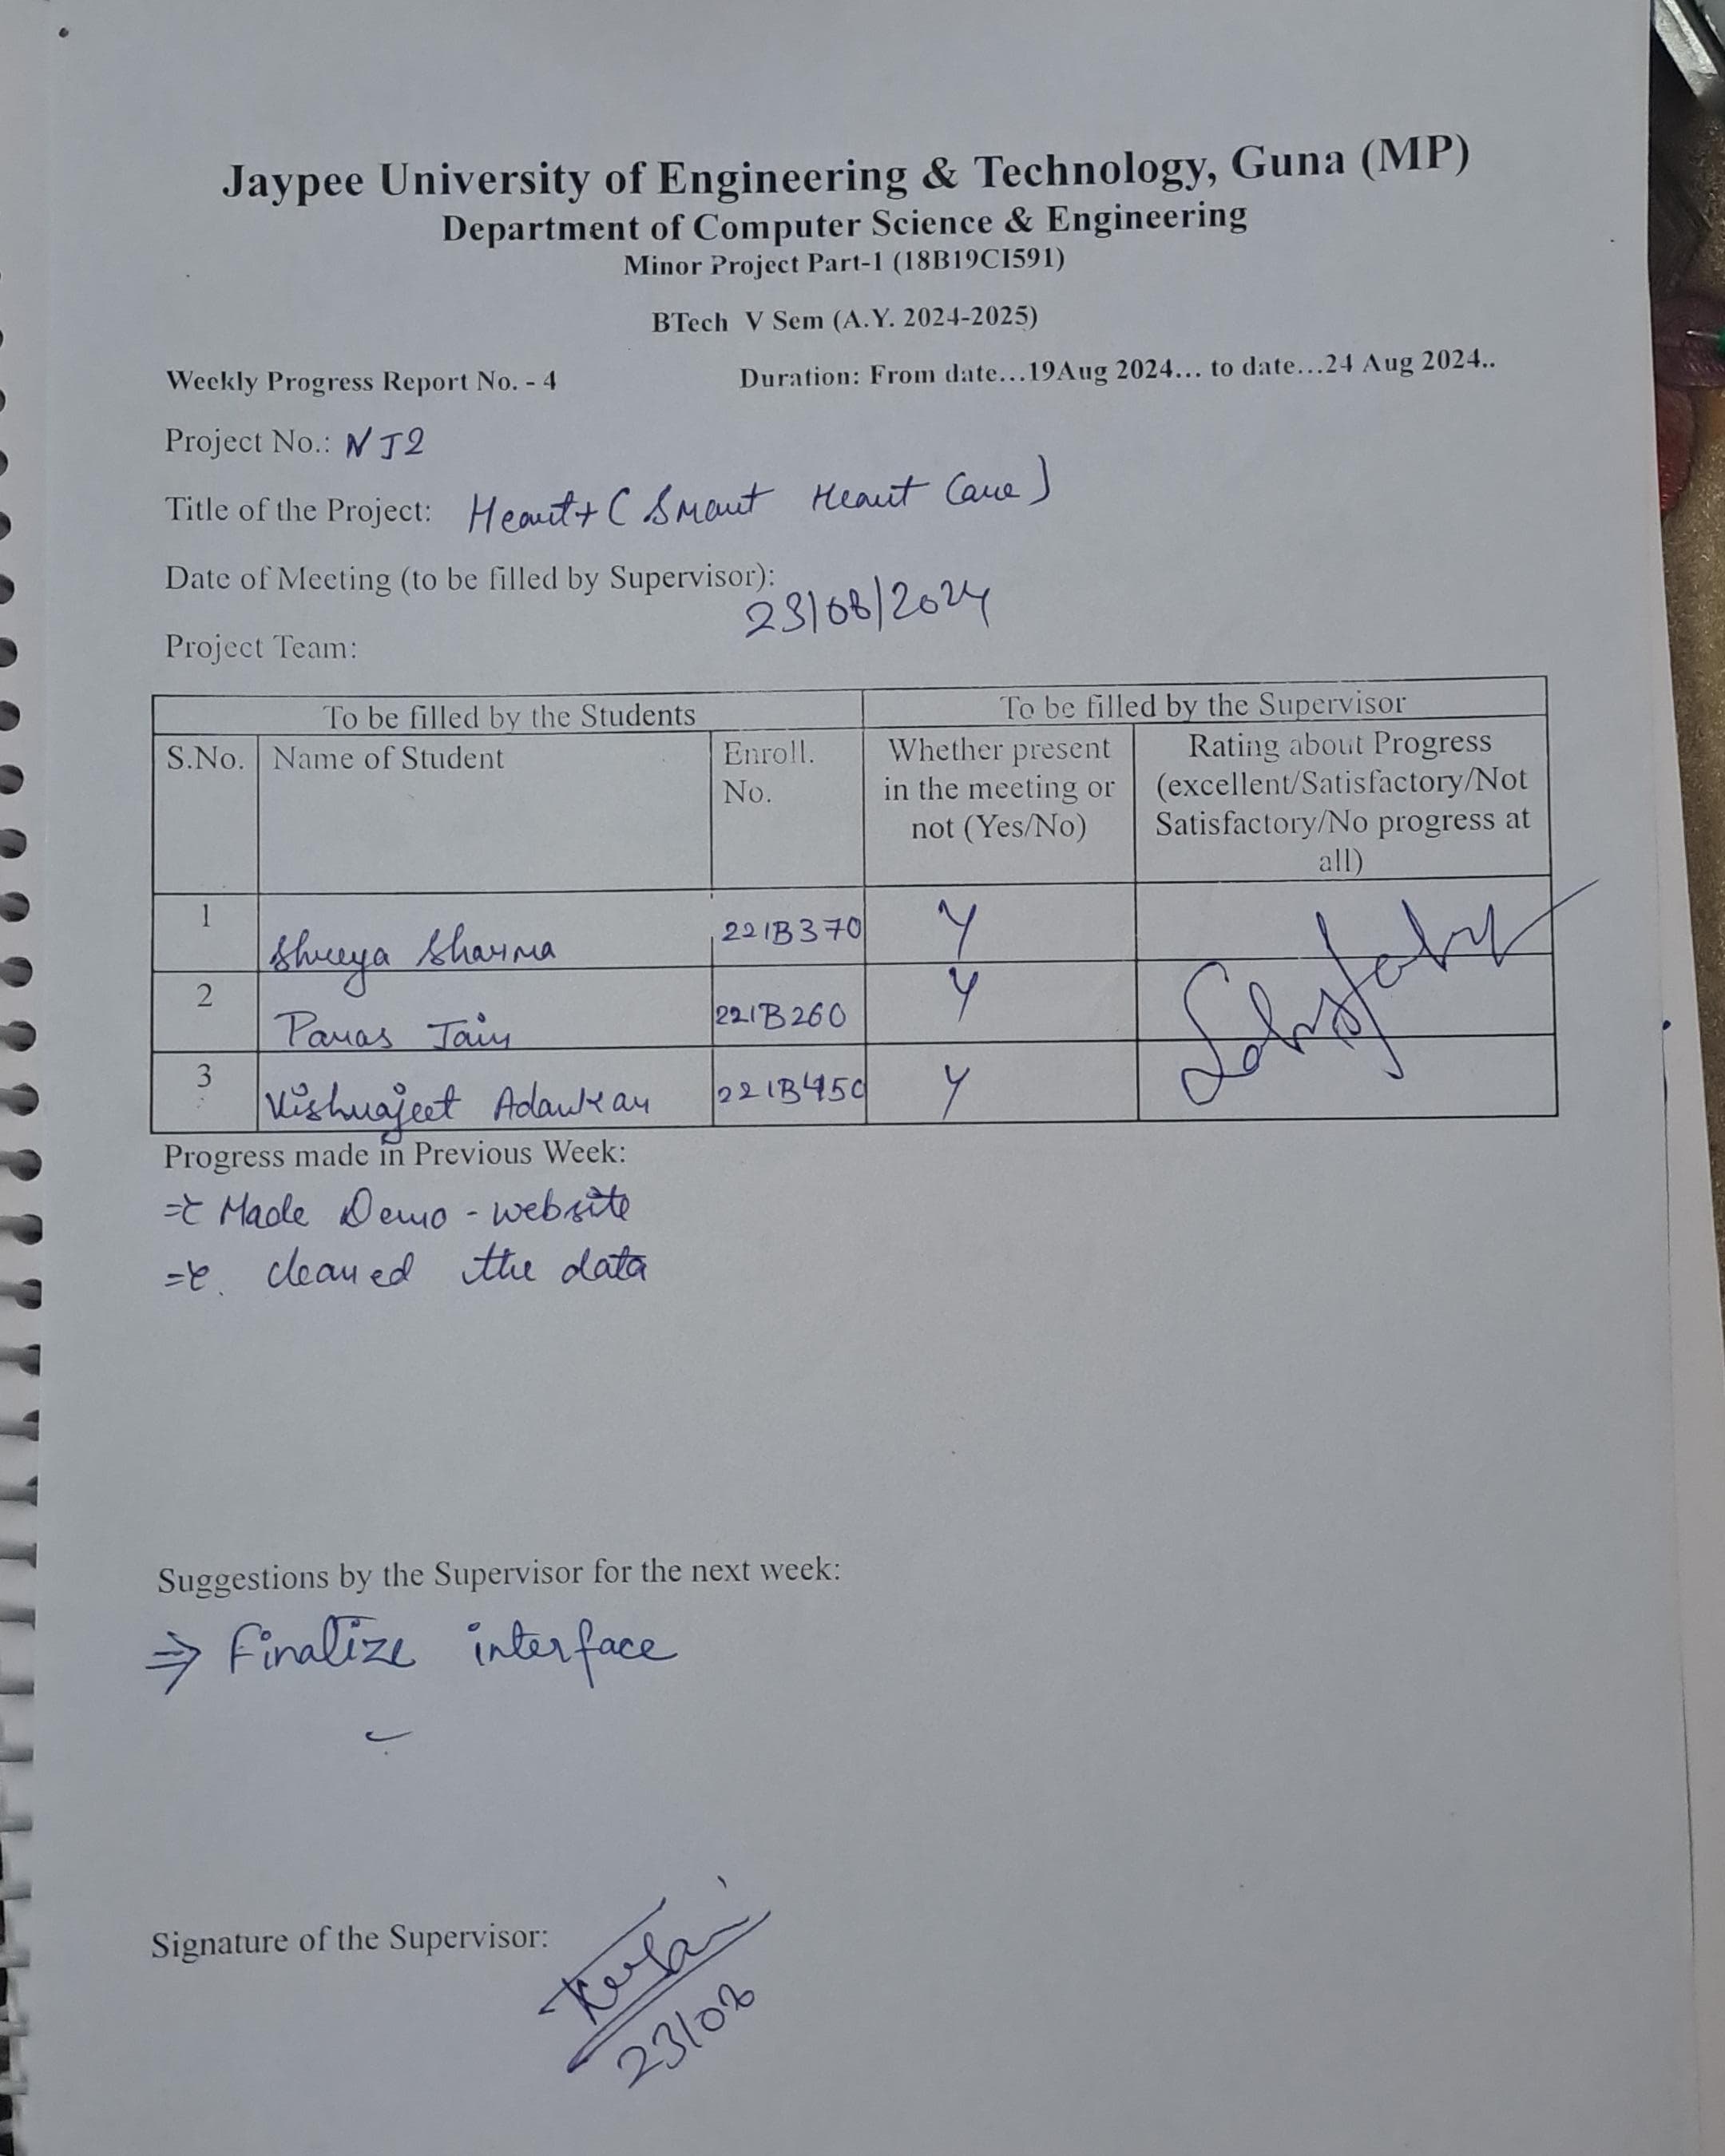 Jaypee University of Engineering & Technology, Guna (MP)
Department of Computer Science & Engineering
Minor Project Part-1 (18B19CI591)
BTech V Sem (A.Y. 2024-2025)
Weekly Progress Report No. - 4 Duration: From date...19Aug 2024... to date...24 Aug 2024..
Project No.: NJ2
Title of the Project: Heart+ (Smart Heart Care)
Date of Meeting (to be filled by Supervisor):
23/08/2024
Project Team:
To be filled by the Students To be filled by the Supervisor
S.No. Name of Student Enroll. No. Whether present in the meeting or not (Yes/No) Rating about Progress (excellent/Satisfactory/Not Satisfactory/No progress at all)
1 Shreya Sharma 221B370 Y
2 Paras Jain 221B260 Y
3 Vishwajeet 221B450 Y
Progress made in Previous Week:
⇒ Made Demo - website
⇒ cleaned the data
Suggestions by the Supervisor for the next week:
⇒ Finalize interface
Signature of the Supervisor:
23/08